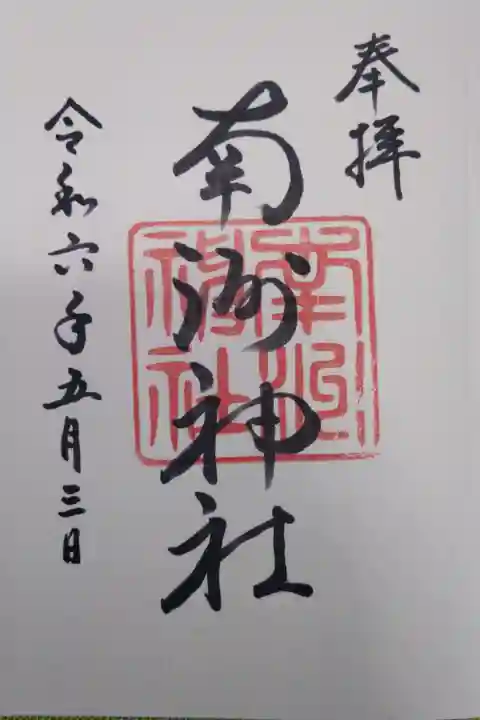 奉拝
南洲神社
南洲神社
令和六年五月三日